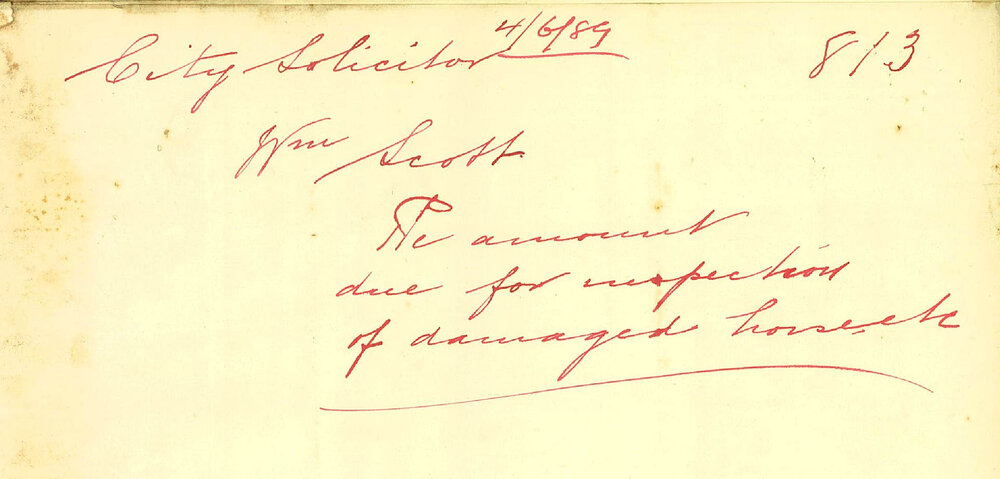 City Solicitor 4/6/89 813
Wm Scott
Re amount
due for inspection
of damaged horse etc